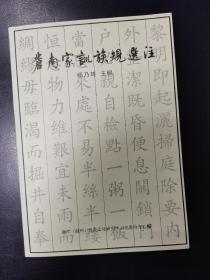 南家訓族規選注
主编
黎明即起灑掃庭除要內
外潔既昏便息關鎖門
戶親自檢點一粥一飯
當處不易半絲半縷
恒物力維艱宜未雨而
綢毋臨渴而掘井自奉